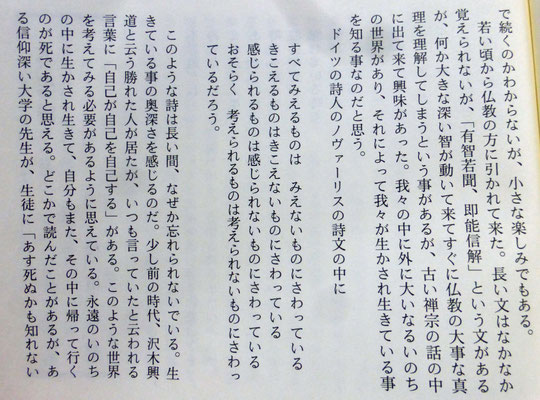 で続くのかわからないが、小さな楽しみでもある。
若い頃から仏教の方に引かれて来た。長い文はなかなか
覚えられないが、「有智若聞、即能信解」という文がある
が、何か大きな深い智が動いて来てすぐに仏教の大事な真
理を理解してしまうという事があるが、古い禅宗の話の中
に出て来て興味があった。我々の中に外に大いなるいのち
の世界があり、それによって我々が生かされ生きている事
を知る事なのだと思う。
ドイツの詩人のノヴァーリスの詩文の中に
すべてみえるものは　みえないものにさわっている
きこえるものはきこえないものにさわっている
感じられるものは感じられないものにさわっている
おそらく　考えられるものは考えられないものにさわっ
ているだろう。
このような詩は長い間、なぜか忘れられないでいる。生
きている事の奥深さを感じるのだ。少し前の時代、沢木興
道と云う勝れた人が居たが、いつも言っていたと云われる
言葉に「自己が自己を自己する」がある。このような世界
を考えてみる必要があるように思えている。永遠のいのち
の中に生かされ生きて、自分もまた、その中に帰って行く
のが死であると思える。どこかで読んだことがあるが、あ
る信仰深い大学の先生が、生徒に「あす死ぬかも知れない